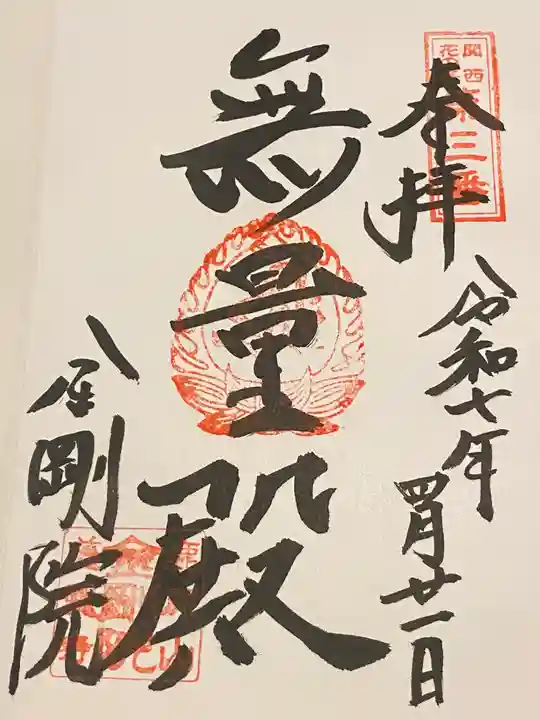 関西花の寺第三番
奉拝
令和七年
四月廿一日
無量殿
金剛院